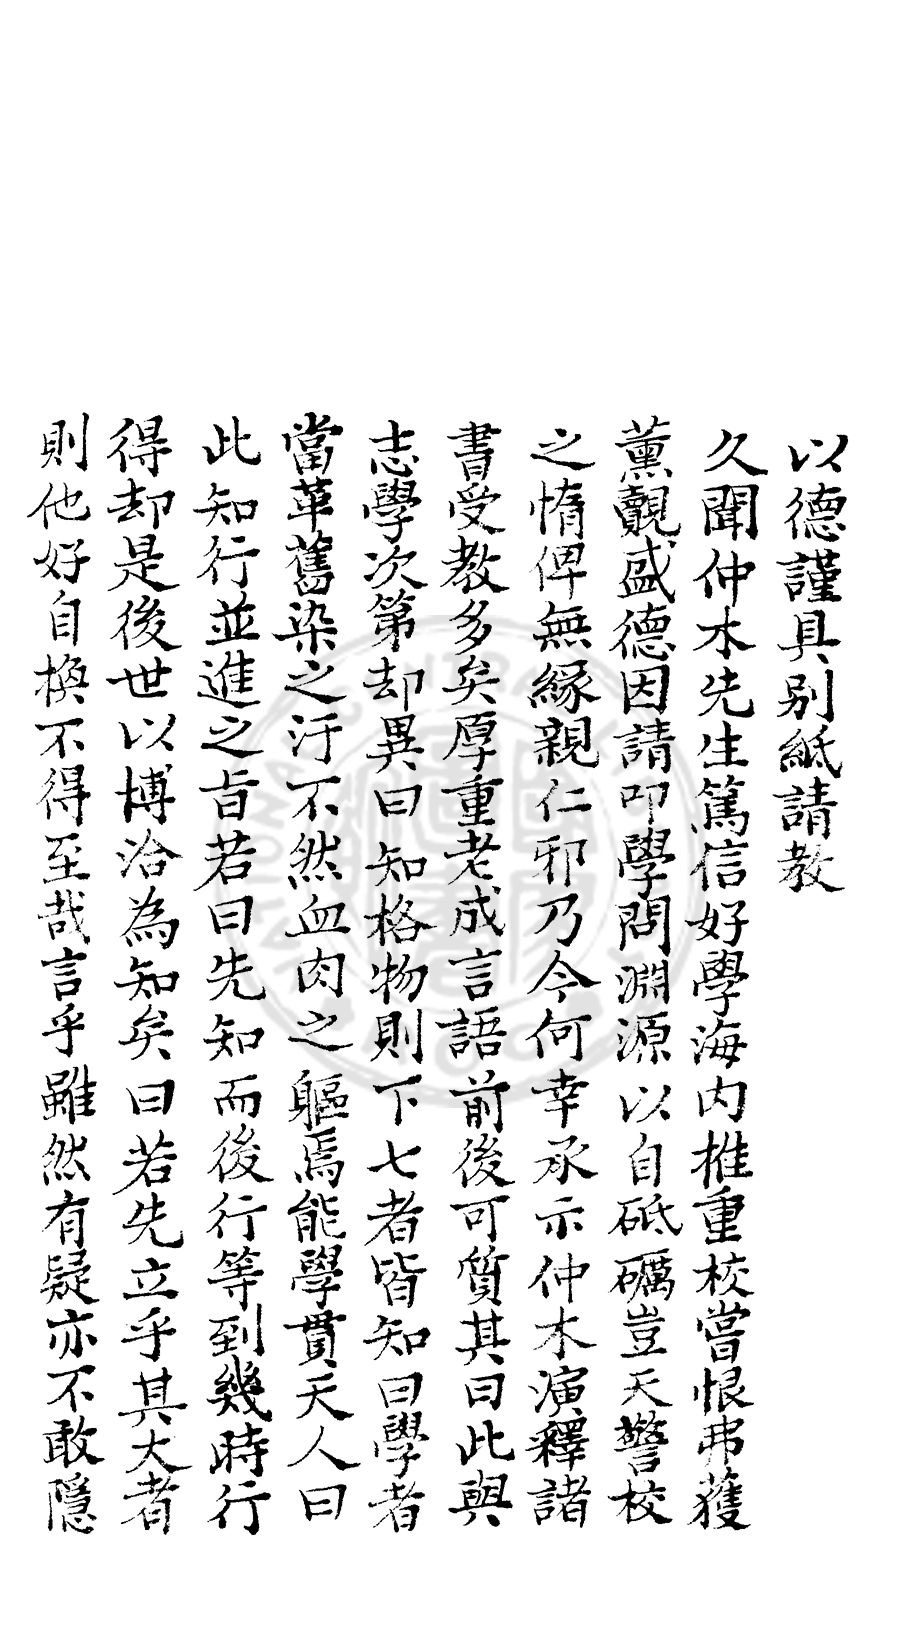 以德謹具别紙請教
久聞仲木先生篤信好學海内推重校嘗恨弗獲
薰覿盛德因請叩學問淵源以自砥礪豈天警校
之惰俾無緣親仁邪乃今何幸承示仲木演釋諸
書受教多矣厚重老成言語前後可質其曰此與
志學次第却異曰知格物則下七者皆知曰學者
當革舊染之汙不然血肉之軀焉能學貫天人曰
此知行並進之旨若曰先知而後行等到幾時行
得却是後世以博洽為知矣曰若先立乎其大者
則他好自換不得至哉言乎雖然有疑亦不敢隱